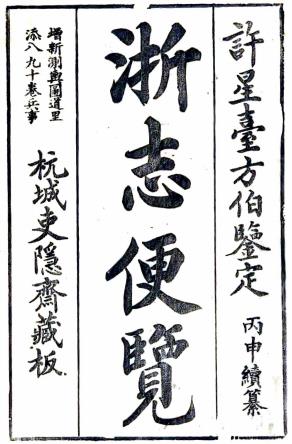 許星臺方伯鑒定
丙申續纂
浙志便覽
增新測輿圖道里
添八九十卷兵事
杭城吏隱齋藏板